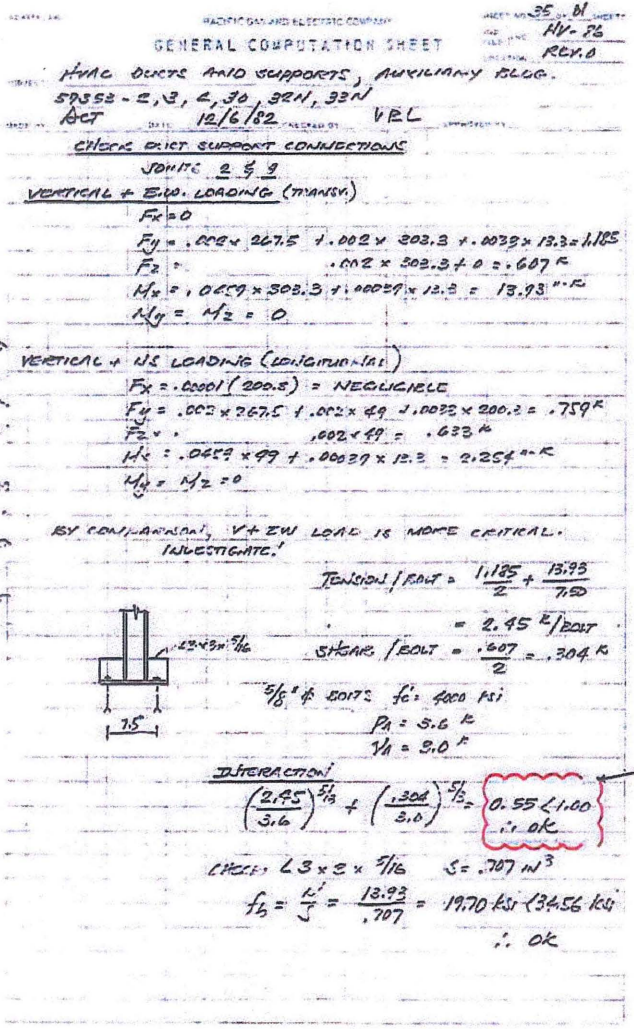 PACIFIC GAS AND ELECTRIC COMPANY
GENERAL COMPUTATION SHEET
35
HV-86
REV.0
HVAC DUCTS AND SUPPORTS, AUXILIARY BLDG.
57353-2, 3, 30, 32N, 33N
ACT 12/6/82 VPL
CHECK DUCT SUPPORT CONNECTIONS
JOINTS 2 & 9
VERTICAL + E.W. LOADING (TRANSV.)
Fx = 0
Fy = .002 x 267.5 + .002 x 303.3 + .0033 x 13.3 = 1.185
Fz = .002 x 303.3 + 0 = .607 K
Mx = .0459 x 303.3 + .00039 x 13.3 = 13.93 "-K
My = Mz = 0
VERTICAL + NS LOADING (LONGITUDINAL)
Fx = .00001 (200.3) = NEGLIGIBLE
Fy = .002 x 267.5 + .002 x 49 + .0033 x 200.3 = .759 K
Fz = .002 x 49 = .633 K
Mx = .0459 x 49 + .00039 x 13.3 = 2.254 "-K
My = Mz = 0
BY COMPARISON, V + EW LOAD IS MORE CRITICAL.
INVESTIGATE!
TENSION / BOLT = 1.185/2 + 13.93/7.50
= 2.45 K/BOLT
SHEAR / BOLT = .607/2 = .304 K
L3x3x5/16
7.5"
5/8" φ BOLTS fc' = 4000 PSI
PA = 3.6 K
VA = 3.0 K
INTERACTION
(2.45/3.6)^5/3 + (.304/3.0)^5/3 = 0.55 < 1.00
∴ OK
CHECK L3 x 3 x 5/16 S = .707 IN³
fb = M/S = 13.93/.707 = 19.70 ksi < 34.56 ksi
∴ OK